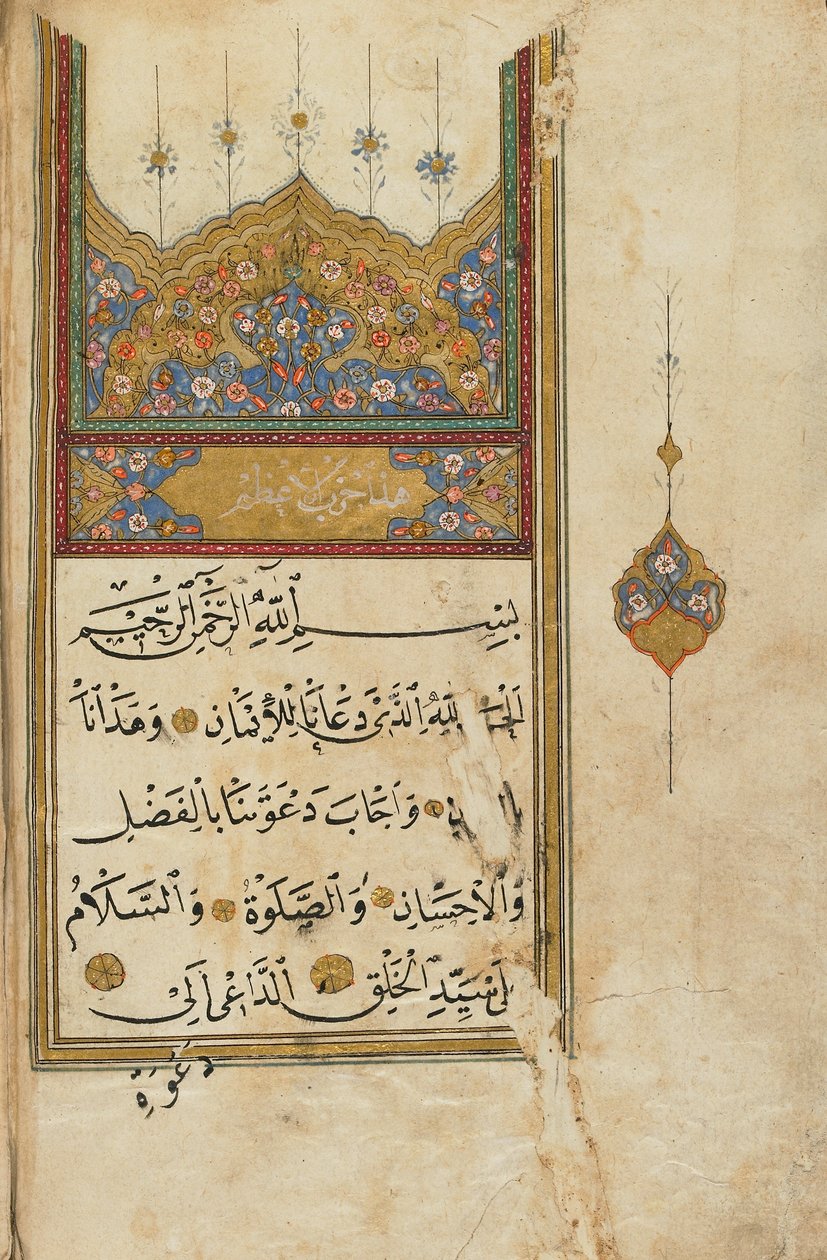 هذا حزب الاعظم
بِسْمِ ٱللّٰهِ الرَّحْمٰنِ ٱلرَّحِيْمِ
اَلْحَمْدُ لِلّٰهِ ٱلَّذٖى دَعَانَا لِلْاٖيْمَانِ وَهَدٰنَا
وَاَجَابَ دَعْوَتَنَا بِالْفَضْلِ
وَالْاِحْسَانِ وَٱلصَّلٰوةُ وَٱلسَّلَامُ
سَيِّدِ ٱلْخَلْقِ ٱلدَّاعٖى اِلٰى
دَعْوَةِ